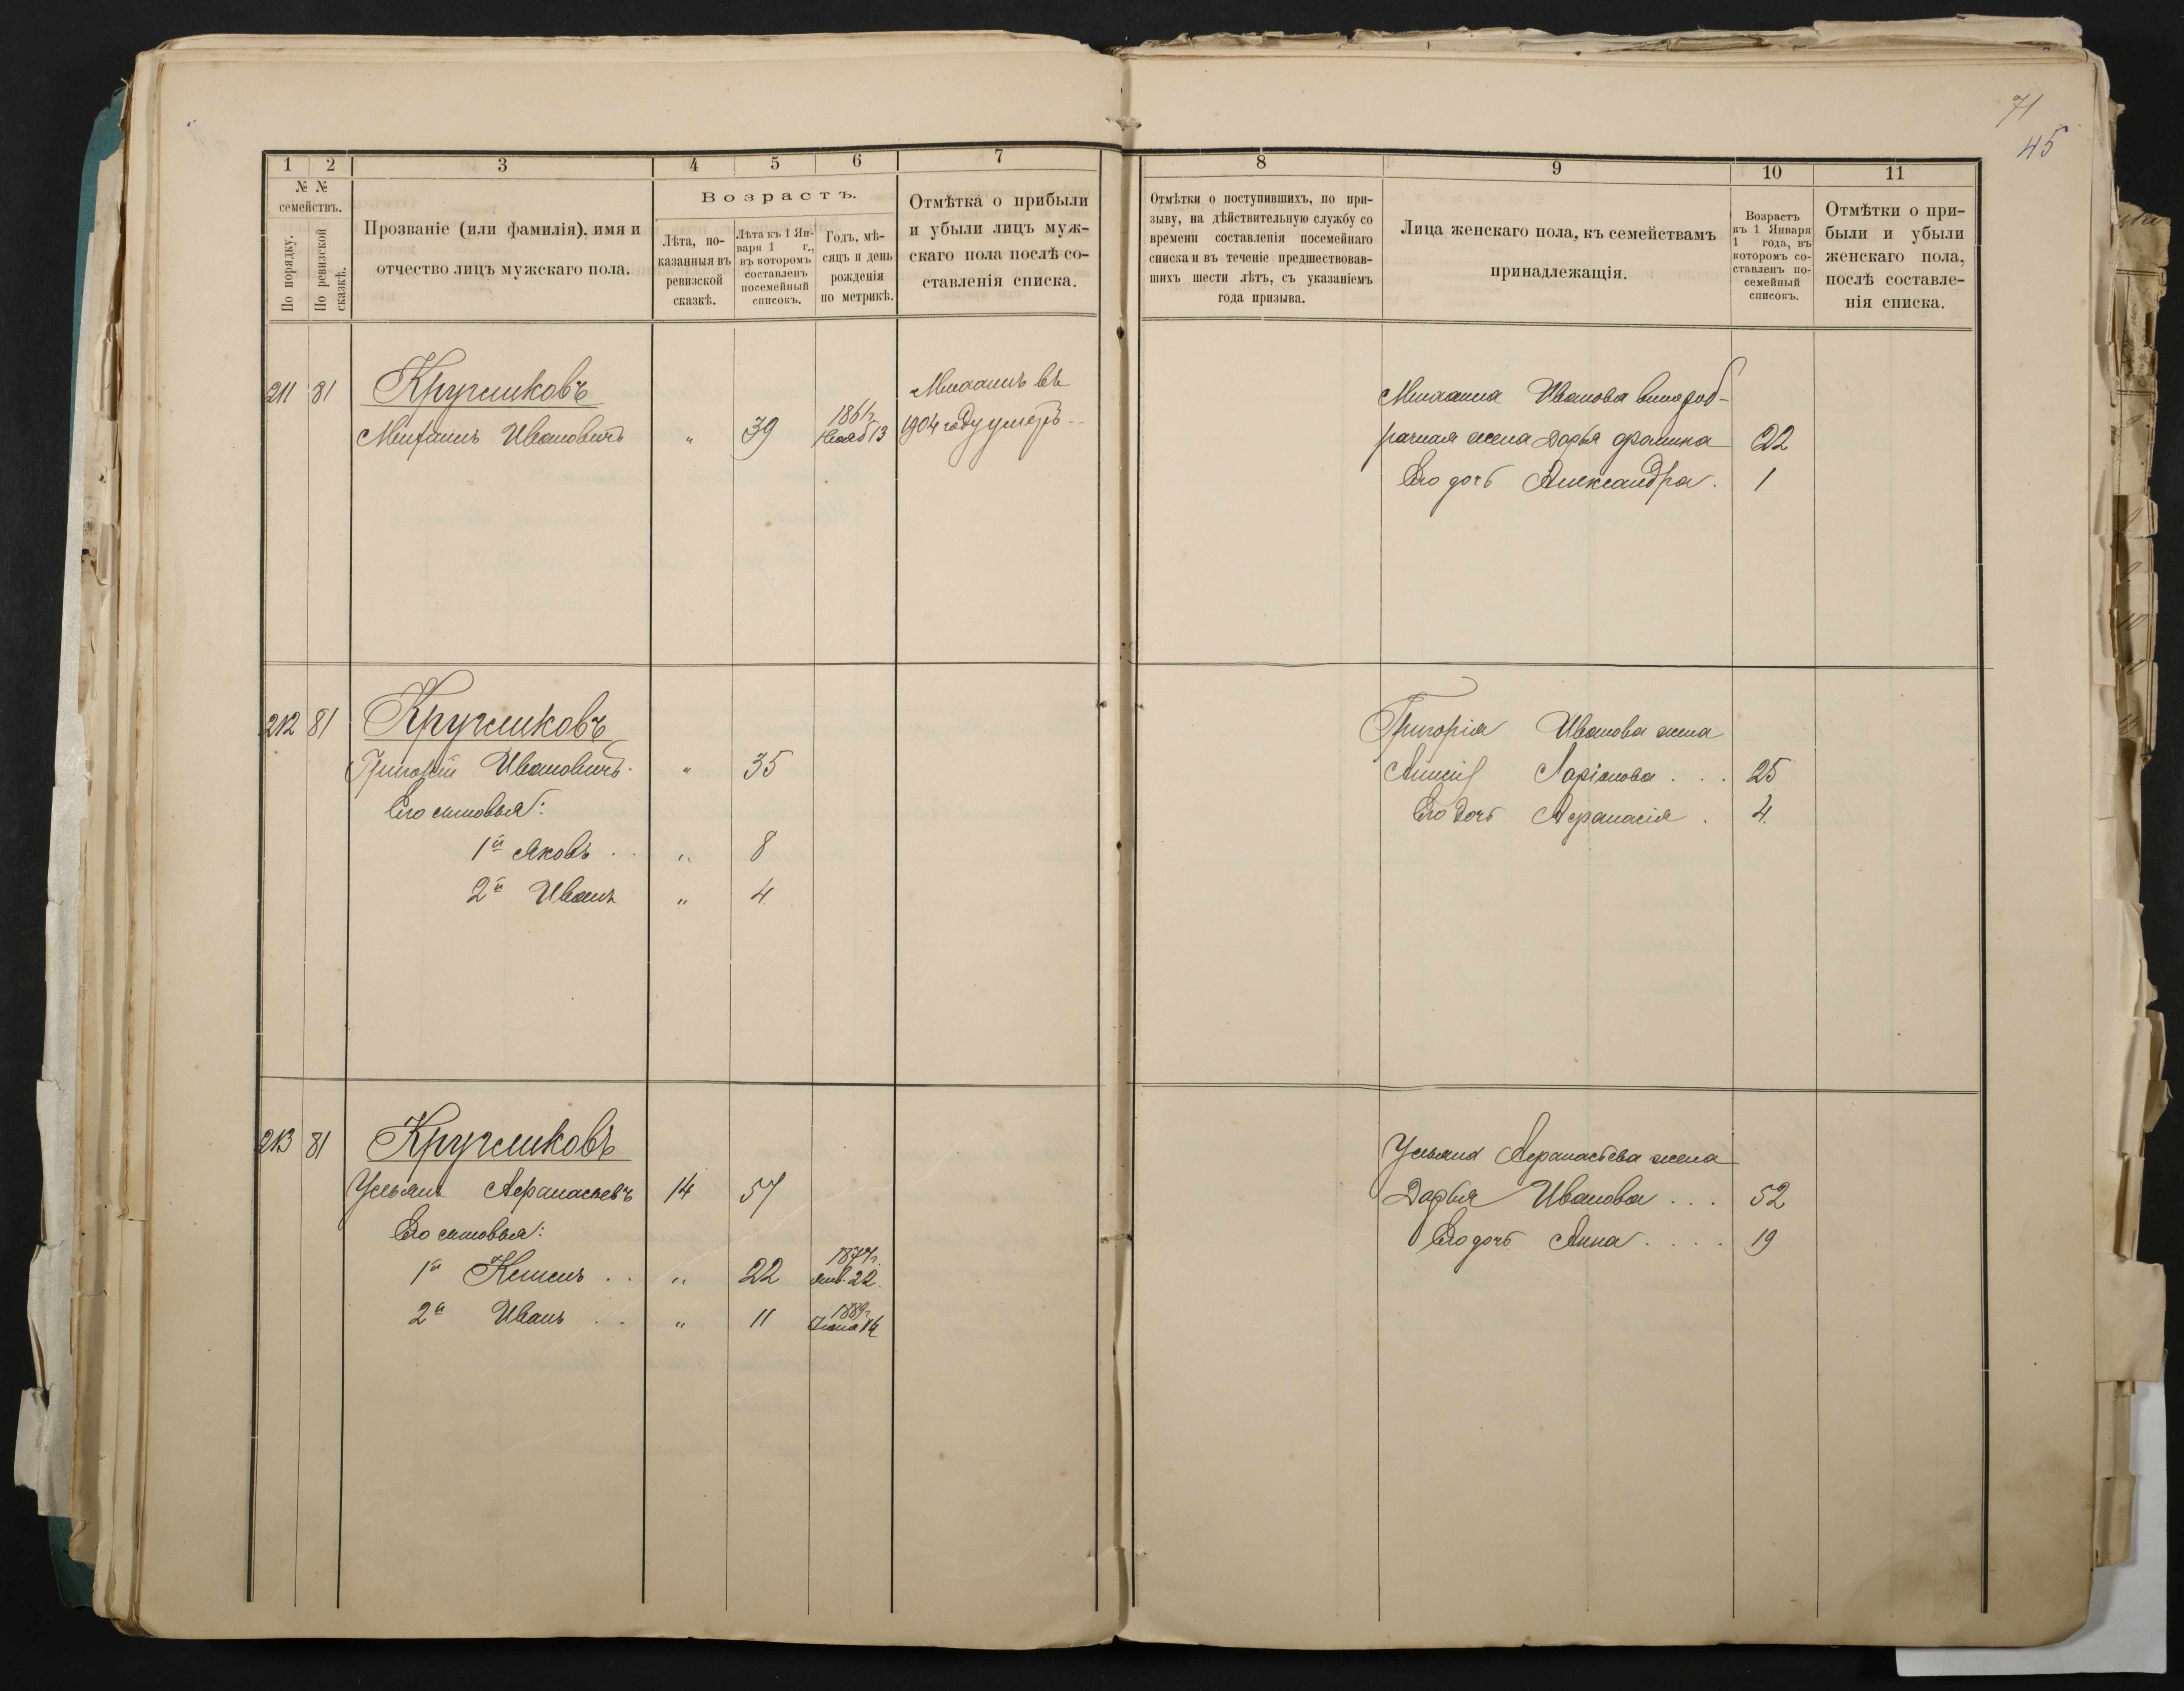 71
45
1 2 3 4 5 6 7
№ №
семействъ.
По порядку.
По ревизской
сказкѣ.
Прозваніе (или фамилія), имя и
отчество лицъ мужскаго пола.
Возрастъ.
Лѣта, по-
казанныя въ
ревизской
сказкѣ.
Лѣта къ 1 Ян-
варя 1 г.,
въ которомъ
составленъ
посемейный
списокъ.
Годъ, мѣ-
сяцъ и день
рожденія
по метрикѣ.
Отмѣтка о прибыли
и убыли лицъ муж-
скаго пола послѣ со-
ставленія списка.
8 9 10 11
Отмѣтки о поступившихъ, по при-
зыву, на дѣйствительную службу со
времени составленія посемейнаго
списка и въ теченіе предшествовав-
шихъ шести лѣтъ, съ указаніемъ
года призыва.
Лица женскаго пола, къ семействамъ
принадлежащія.
Возрастъ
къ 1 Января
1 года, въ
которомъ со-
ставленъ по-
семейный
списокъ.
Отмѣтки о при-
были и убыли
женскаго пола,
послѣ составле-
нія списка.
211 81 Кругликовъ
Михаилъ Ивановичъ " 39
Нояб 13
Михаилъ въ
1904 году умеръ
Михаила Иванова второб-
рачная жена Дарья Фомина 22
Его дочь Александра. 1
212 81 Кругликовъ
Григорій Ивановичъ. " 35
Его сыновья:
1й Яковъ . . " 8
2й Иванъ " 4
Григорія Иванова жена
Ларіонова . . . 25
Его дочь Афанасія . 4.
213 81 Кругликовъ
Ульянъ Афанасьевъ 14 57
Его сыновья:
1й . . " 22 1877г.
Янв. 22.
2й Иванъ . . " 11 1889г.
14
Ульяна Афанасьева жена
Дарья Иванова . . . 52
Его дочь Анна . . . . 19